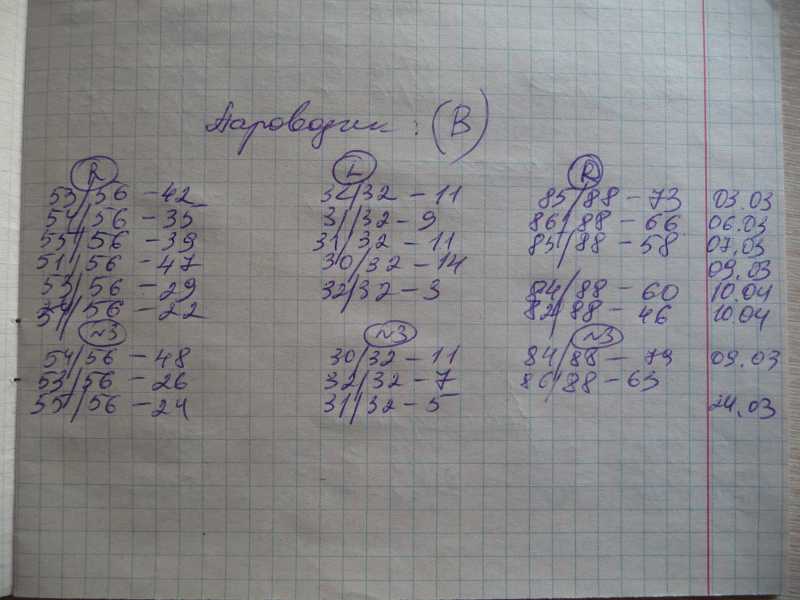 Пароводик : (В)
R L R
53/56 – 42 32/32 – 11 85/88 – 73 03.03
54/56 – 35 31/32 – 9 86/88 – 66 06.03
55/56 – 39 31/32 – 11 85/88 – 58 07.03
51/56 – 47 30/32 – 14 09.03
53/56 – 29 32/32 – 3 84/88 – 60 10.04
54/56 – 22 82/88 – 46 10.04
~3 ~3 ~3
54/56 – 48 30/32 – 11 84/88 – 79 09.03
53/56 – 26 32/32 – 7 86/88 – 63
55/56 – 24 31/32 – 5 24.03